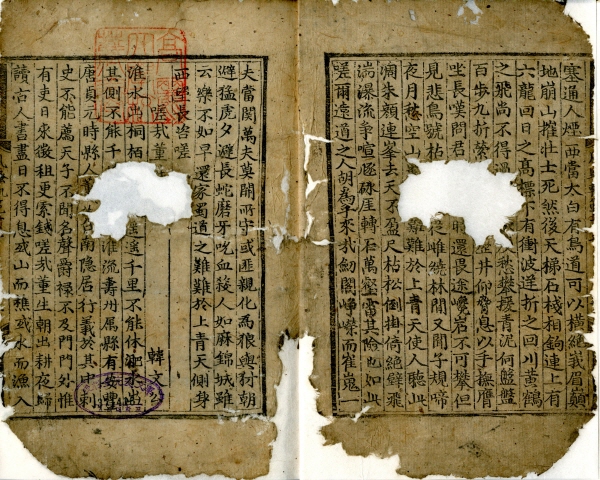 塞通人煙西當太白有鳥道可以橫絶峩眉顚
地崩山摧壯士死然後天梯石棧相鉤連上有
六龍回日之高標下有衝波逆折之回川黃鶴
之飛尚不得愁攀援青泥何盤盤
百步九折縈井仰脅息以手撫膺
坐長嘆問君時還畏途巉岩不可攀但
見悲鳥號枯從雌繞林間又聞子規啼
夜月愁空山難難於上青天使人聽此
凋朱顔連峯去天不盈尺枯松倒掛倚絶壁飛
湍瀑流爭喧豗砯崖轉石萬壑雷其險也如此
嗟爾遠道之人胡爲乎來哉劒閣崢嶸而崔嵬一
夫當關萬夫莫開所守或匪親化爲狼與豺朝
避猛虎夕避長蛇磨牙吮血殺人如麻錦城雖
云樂不如早還家蜀道之難難於上青天側身
西望長咨嗟
嗟哉董 韓文
淮水出桐栢遙千里不能休淝水出
其側不能千淮流壽州屬縣有安豊
唐貞元時縣人召南隱居行義於其中刺
史不能薦天子不聞名聲爵祿不及門門外惟
有吏日來徵租更索錢嗟哉董生朝出耕夜歸
讀古人書盡日不得息或山而樵或水而漁入